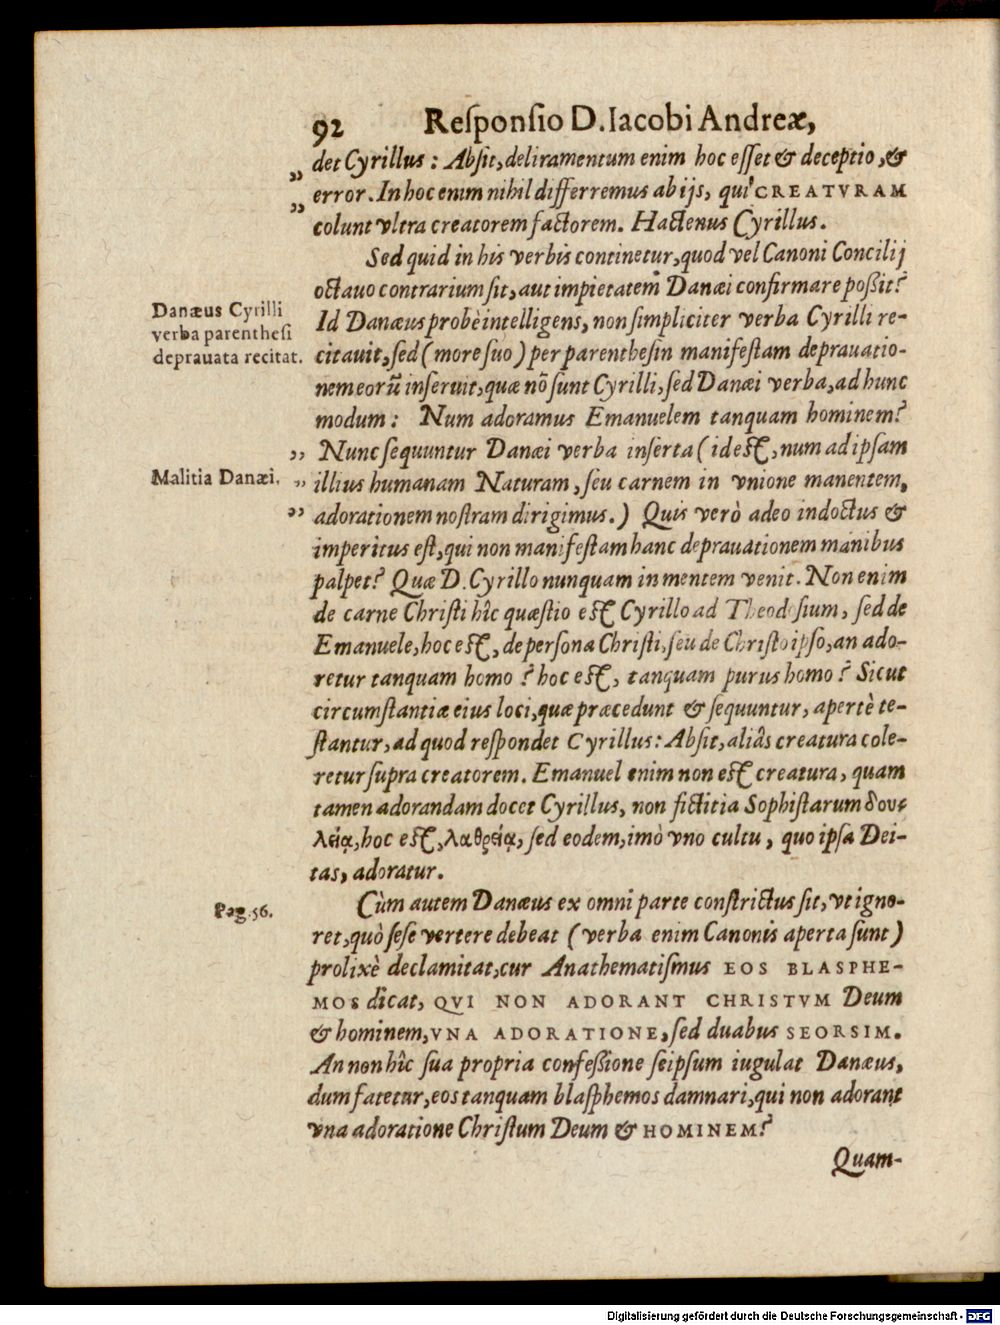 92 Reſponſio D. Iacobi Andreæ,
„ det Cyrillus : Abſit, deliramentum enim hoc eſſet & deceptio, &
„ error. In hoc enim nihil differremus ab ijs, qui CREATVRAM
colunt vltra creatorem factorem. Hactenus Cyrillus.
Sed quid in his verbis continetur, quod vel Canoni Concilij
octauo contrarium ſit, aut impietatem Danæi confirmare poßit?
Danæus Cyrilli
verba parentheſi
deprauata recitat.
Id Danæus probè intelligens, non ſimpliciter verba Cyrilli re-
citauit, ſed (more ſuo) per parentheſin manifeſtam deprauatio-
nem eorũ inſeruit, quæ nõ ſunt Cyrilli, ſed Danæi verba, ad hunc
modum : Num adoramus Emanuelem tanquam hominem?
„ Nunc ſequuntur Danæi verba inſerta (id eſt, num ad ipſam
Malitia Danæi.
„ illius humanam Naturam, ſeu carnem in vnione manentem,
„ adorationem noſtram dirigimus.) Quis verò adeo indoctus &
imperitus eſt, qui non manifeſtam hanc deprauationem manibus
palpet? Quæ D. Cyrillo nunquam in mentem venit. Non enim
de carne Chriſti hîc quæſtio eſt Cyrillo ad Theodoſium, ſed de
Emanuele, hoc eſt, de perſona Chriſti, ſeu de Chriſto ipſo, an ado-
retur tanquam homo ? hoc eſt, tanquam purus homo ? Sicut
circumſtantiæ eius loci, quæ præcedunt & ſequuntur, apertè te-
ſtantur, ad quod reſpondet Cyrillus : Abſit, aliâs creatura cole-
retur ſupra creatorem. Emanuel enim non eſt creatura, quam
tamen adorandam docet Cyrillus, non fictitia Sophiſtarum δου-
λείᾳ, hoc eſt, λαθρείᾳ, ſed eodem, imò vno cultu, quo ipſa Dei-
tas, adoratur.
Pag. 56.
Cùm autem Danæus ex omni parte conſtrictus ſit, vt igno-
ret, quò ſeſe vertere debeat (verba enim Canonis aperta ſunt)
prolixè declamitat, cur Anathematiſmus EOS BLASPHE-
MOS dicat, QVI NON ADORANT CHRISTVM Deum
& hominem, VNA ADORATIONE, ſed duabus SEORSIM.
An non hîc ſua propria confeßione ſeipſum iugulat Danæus,
dum fatetur, eos tanquam blaſphemos damnari, qui non adorant
vna adoratione Chriſtum Deum & HOMINEM?
Quam-
Digitalisierung gefördert durch die Deutsche Forschungsgemeinschaft - DFG